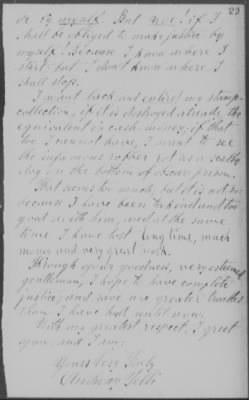 23
or by myself. But Dio! if I
shall be obliged to make justice by
myself! Because I know where I
start, but I don't know where I
shall stop.
I want back and entire my stamp-
collection, if it is destroyed already the
equivalent in cash money; if that
too I can not have, I want to see
the infamous robber rot as a
dog on the bottom of prison.
That seems too much, but it is not so
because I have been too kind and too
good with him, and at the same
time I have lost long time, much
money and very great work.
Through your goodness, very esteemed
gentleman, I hope to have complete
justice, and save me greater troubles
than I have had until now.
With my greatest respect I greet
you and I am:
Yours very truly